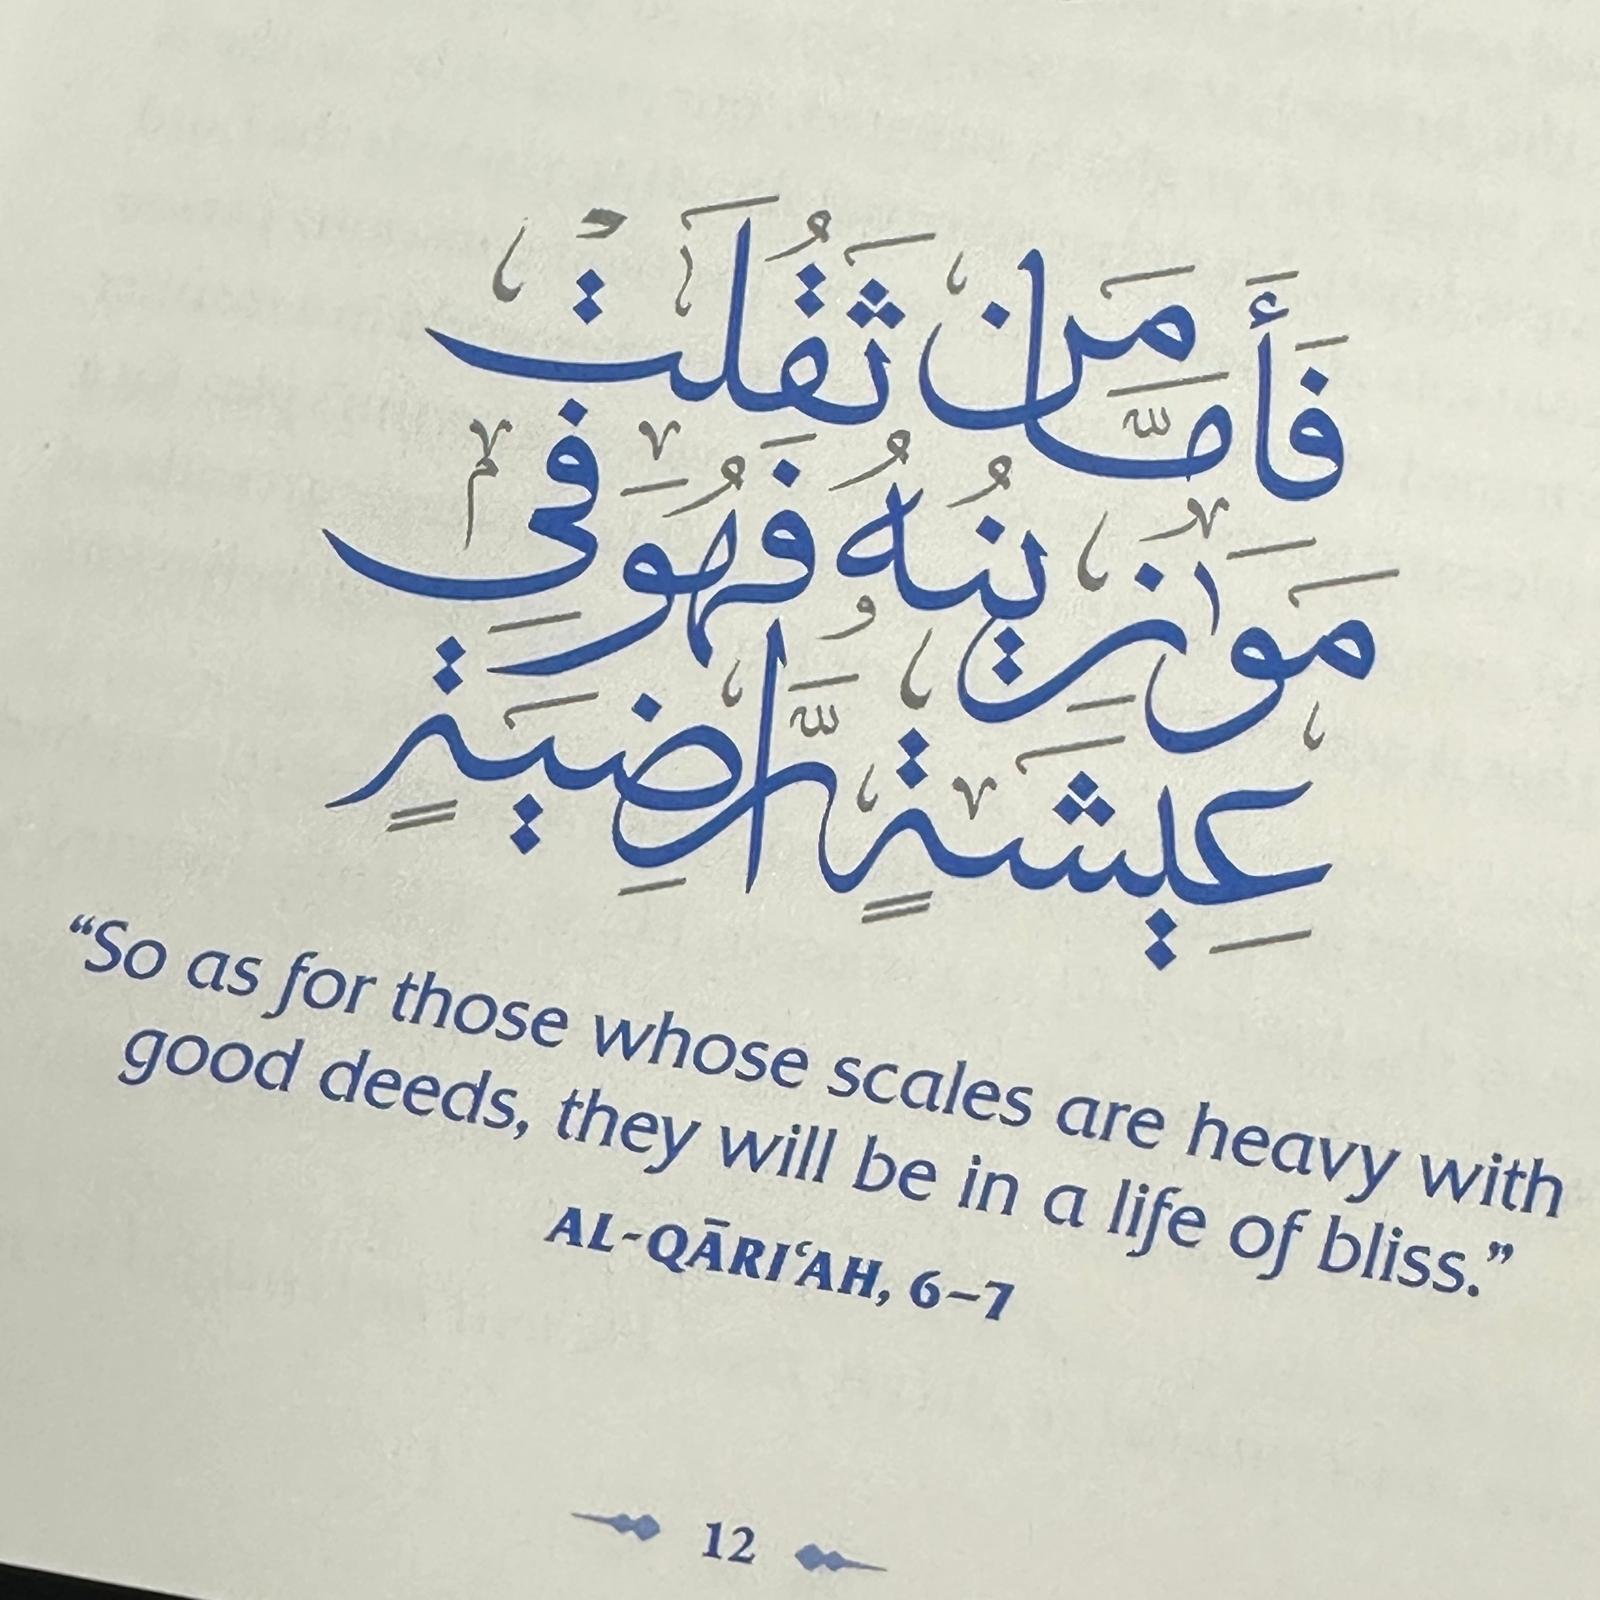 فَأَمَّا مَن ثَقُلَتْ
مَوَازِينُهُ فَهُوَ فِي
عِيشَةٍ رَّاضِيَةٍ
“So as for those whose scales are heavy with
good deeds, they will be in a life of bliss.”
AL-QĀRI‘AH, 6–7
12